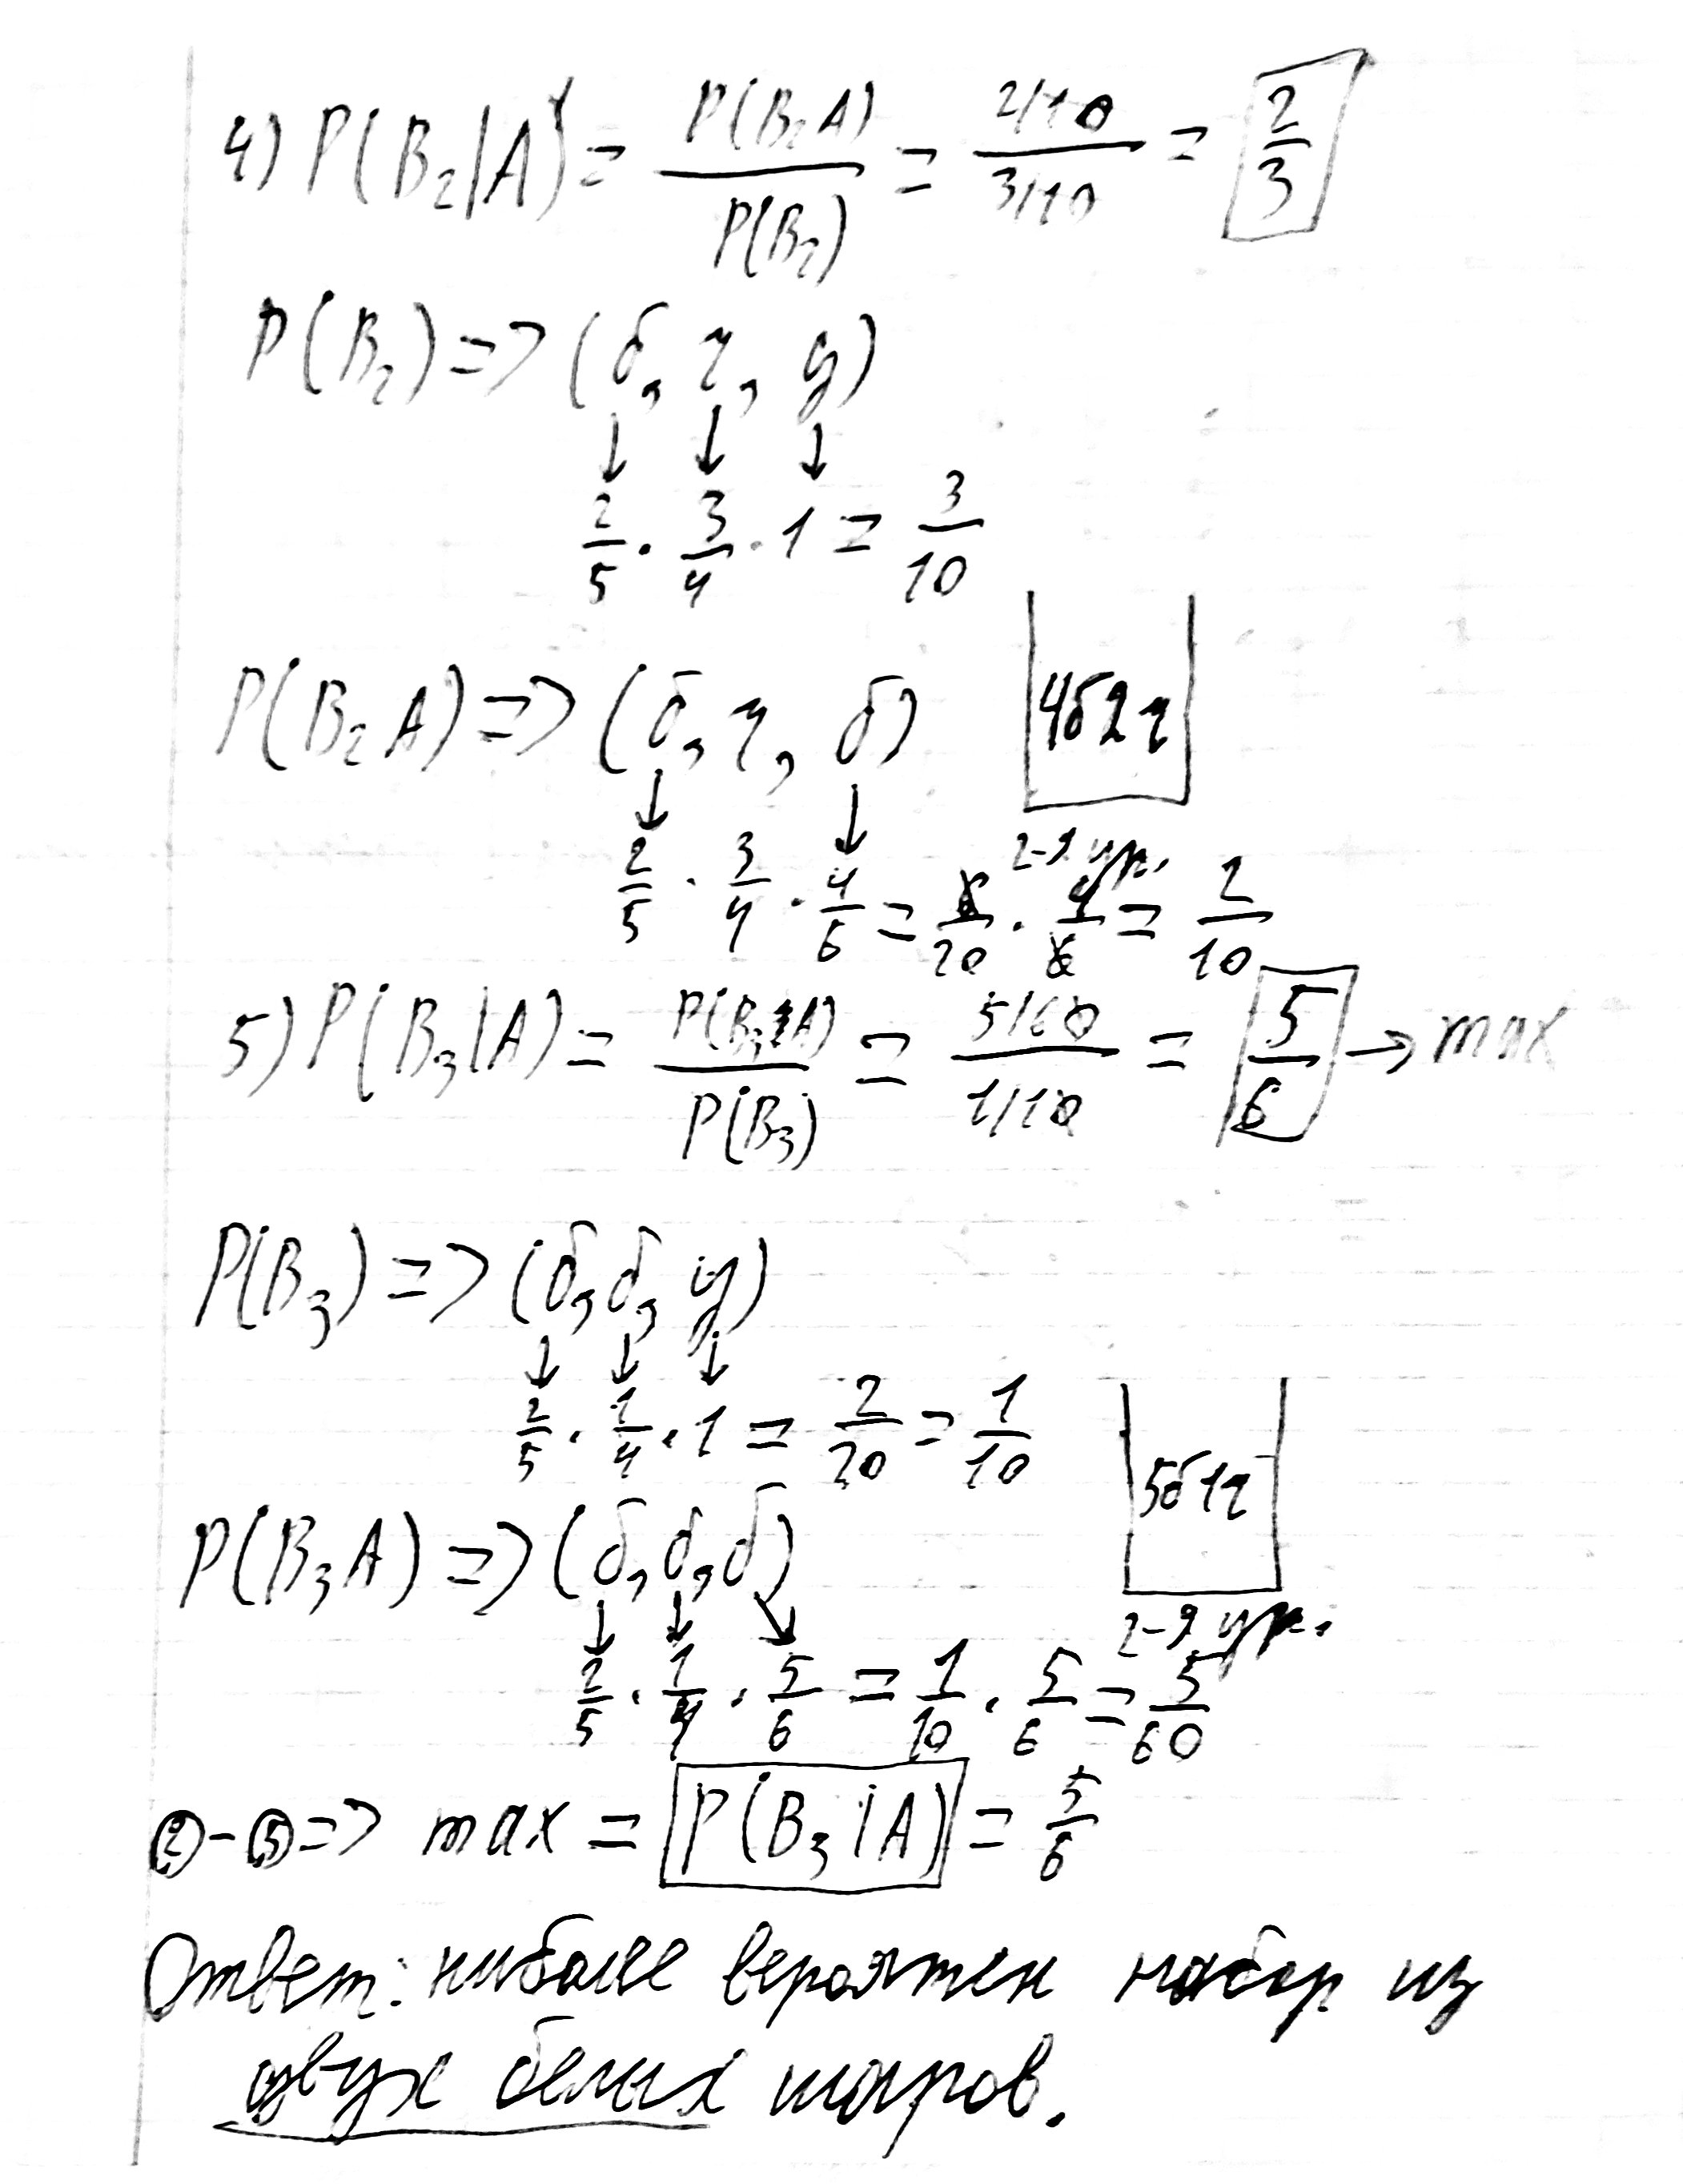 4) P(B₂|A) = P(B₂A)/P(B₂) = (2/10)/(3/10) = 2/3
P(B₂) => (б, ч, у)
2/5 · 3/4 · 1 = 3/10
P(B₂A) => (б, ч, б)
4б2ч
2-я ур.
2/5 · 3/4 · 4/6 = 6/20 · 4/6 = 2/10
5) P(B₃|A) = P(B₃A)/P(B₃) = (5/60)/(1/10) = 5/6 → max
P(B₃) => (б, б, у)
2/5 · 1/4 · 1 = 2/20 = 1/10
5б1ч
P(B₃A) => (б, б, б)
2-я ур.
2/5 · 1/4 · 5/6 = 1/10 · 5/6 = 5/60
②-⑤ => max = P(B₃|A) = 5/6
Ответ: нибалее вероятен набор из
двух белых шаров.